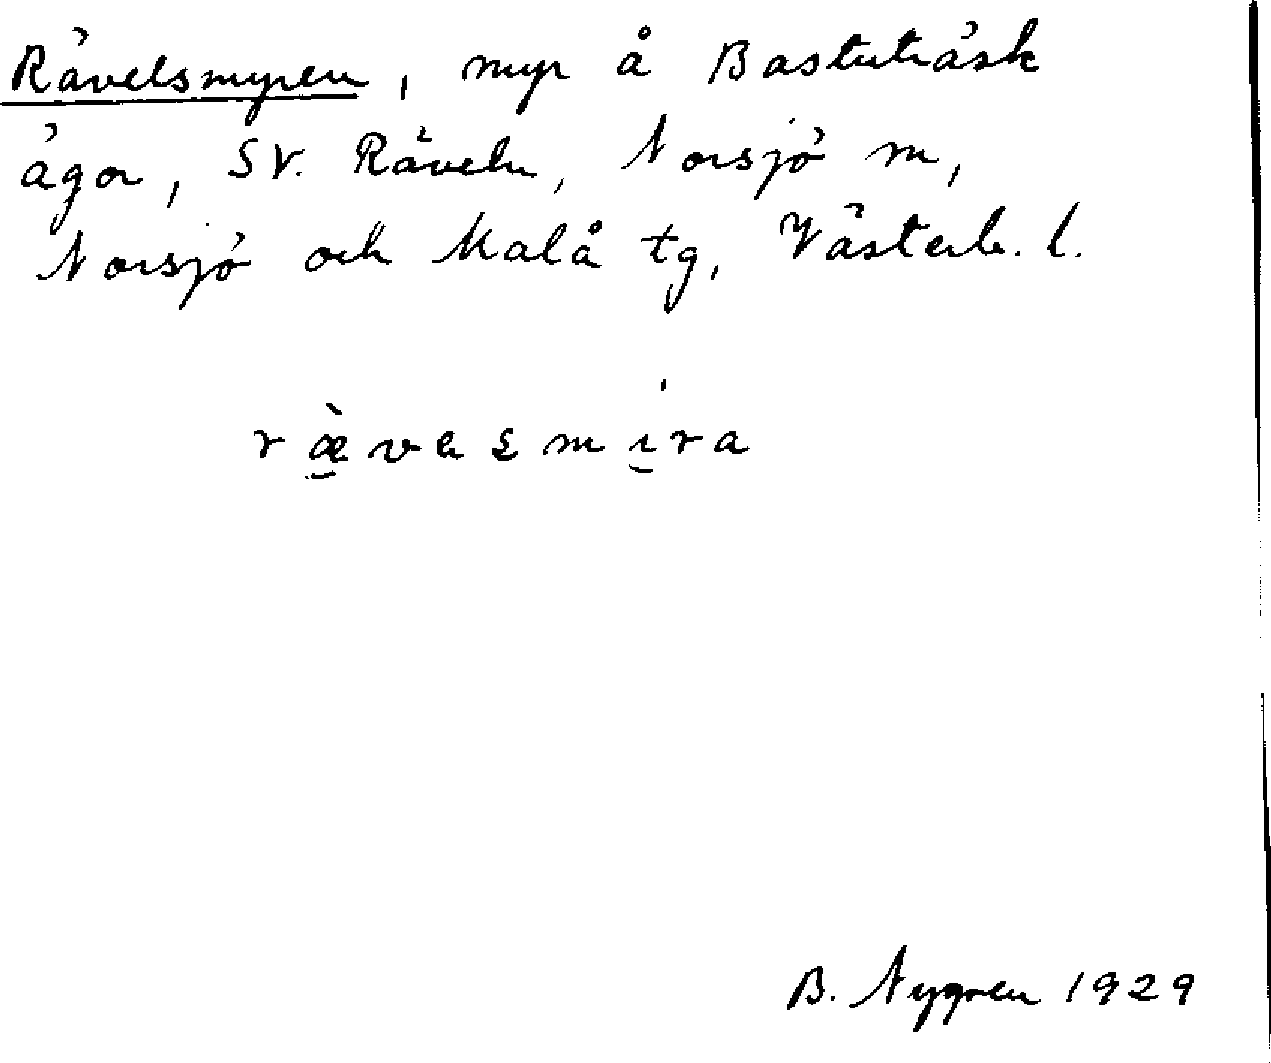 Rävelsmyren, myr å Bastuträsk
ägor, SV. Räveln, Norsjö sn,
Norsjö och Malå tg, Västerb. l.
ræ̀velsmı̍ra
B. Nygren 1929